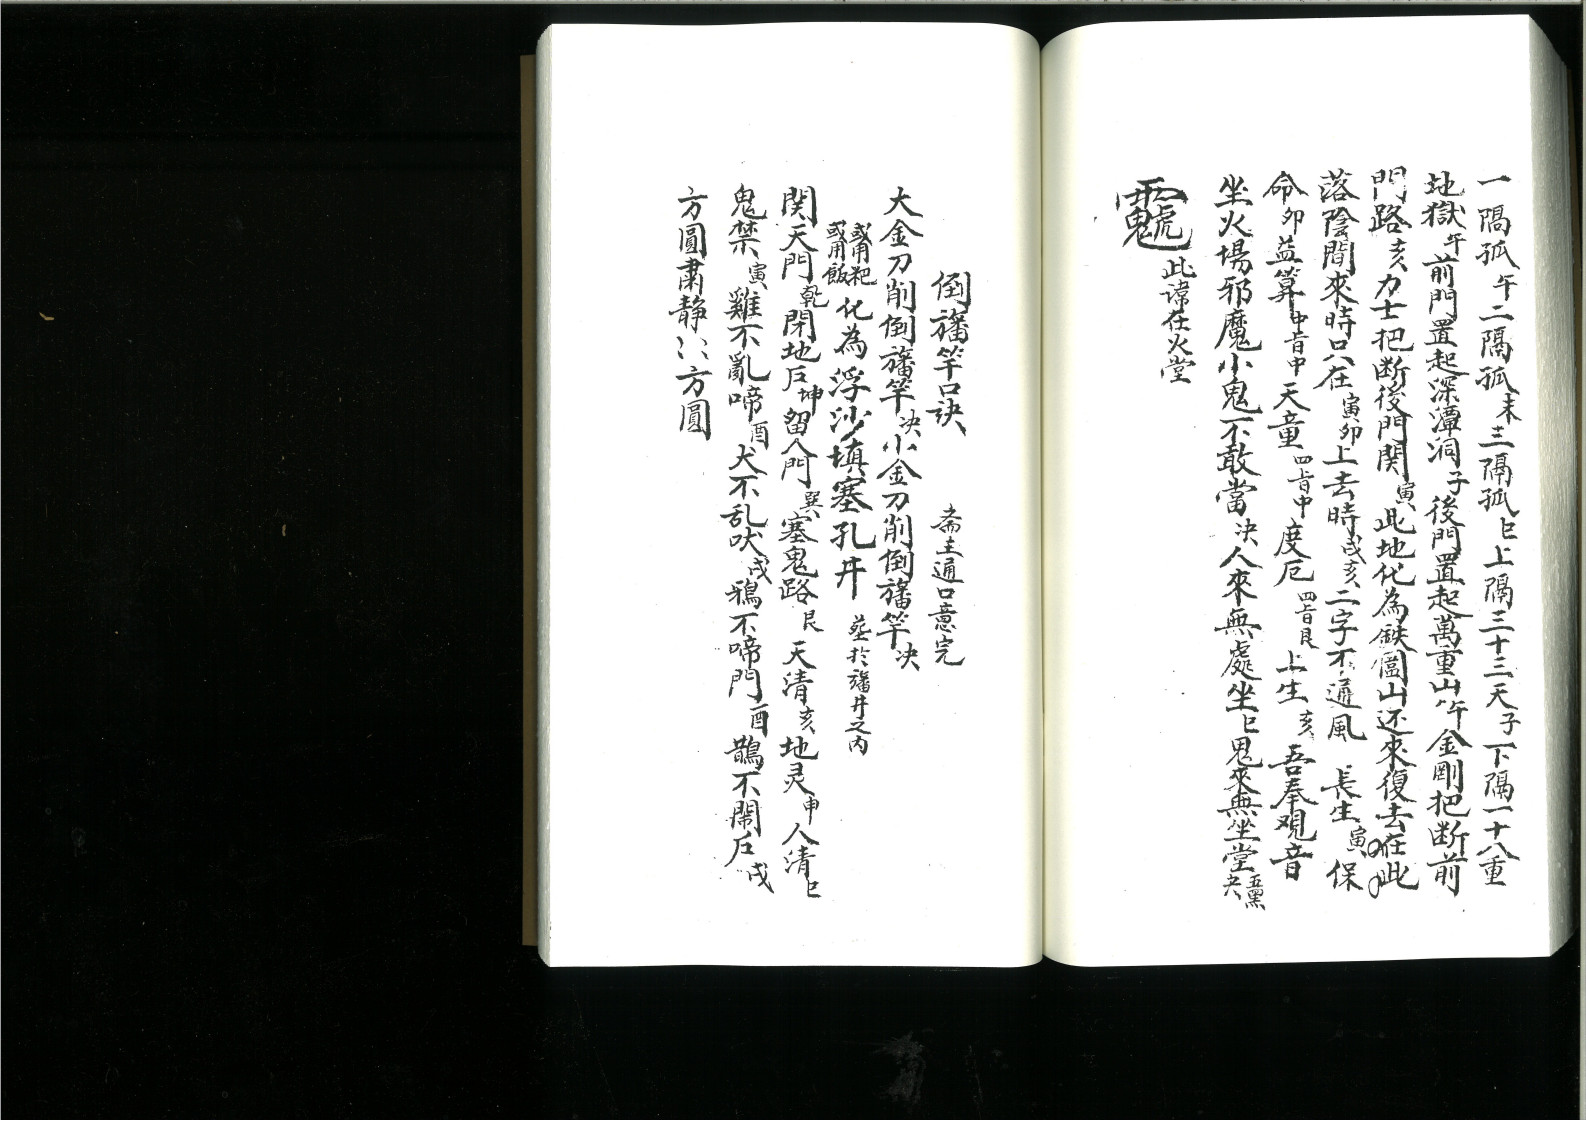 一隔孤午二隔孤未三隔孤巳上隔三十三天子下隔一十八重
地獄午前門置起深潭洞子後門置起萬重山午金剛把断前
門路亥力士把断後門関寅此地化為鉄圍山还來復去在此
落陰間來時口在寅卯上去時戌亥二字不通風長生寅保
命卯益算中旨中天童四旨中度厄四旨艮上生亥吾奉观音
坐火場邪魔小鬼不敢當决人來無處坐巳鬼來無坐堂五黑决
此諱在火堂
倒旛竿口訣 斋主通口意完
大金刀削倒旛竿决小金刀削倒旛竿决
或用粑或用飯化為浮沙填塞孔井 於旛井之内
関天門乾閉地户坤留人門巽塞鬼路艮天清亥地灵申人清巳
鬼禁寅雞不亂啼酉犬不乱吠戌鴉不啼門酉鵲不鬧户戌
方圓肅静〻方圓